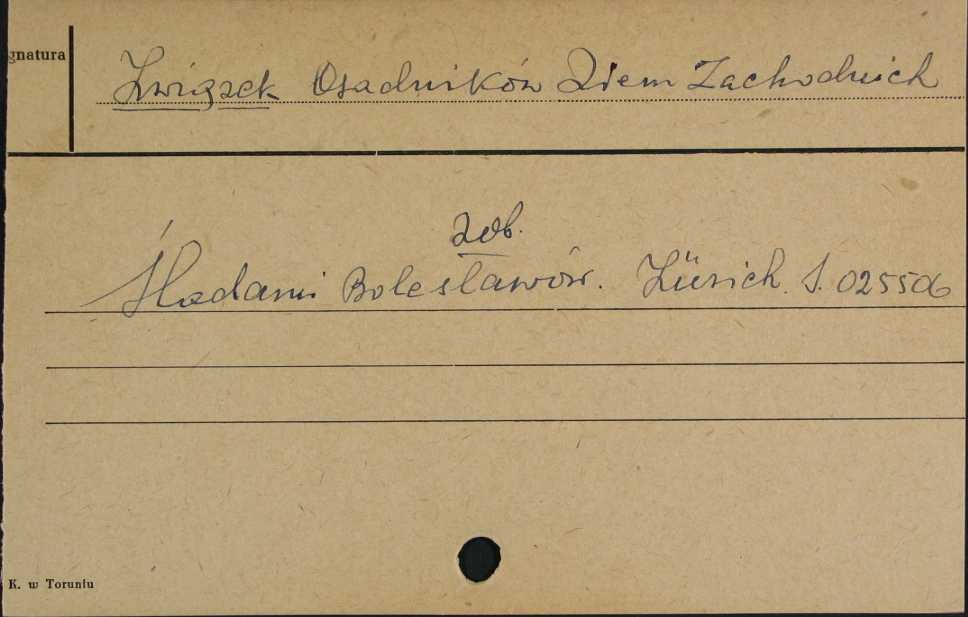 gnatura
Związek Osadników Ziem Zachodnich
zob.
Śladami Bolesławów. Zürich. S. 025506
K. w Toruniu